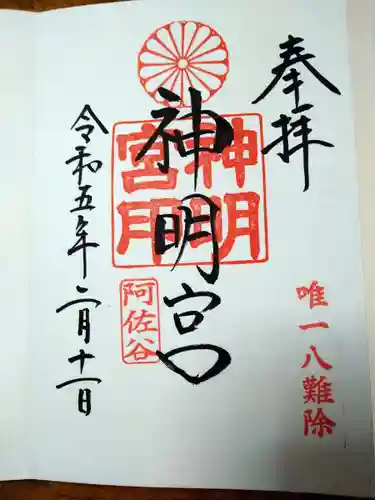 奉拝
唯一八難除
神明宮
神明
宮印
阿佐谷
令和五年二月十一日